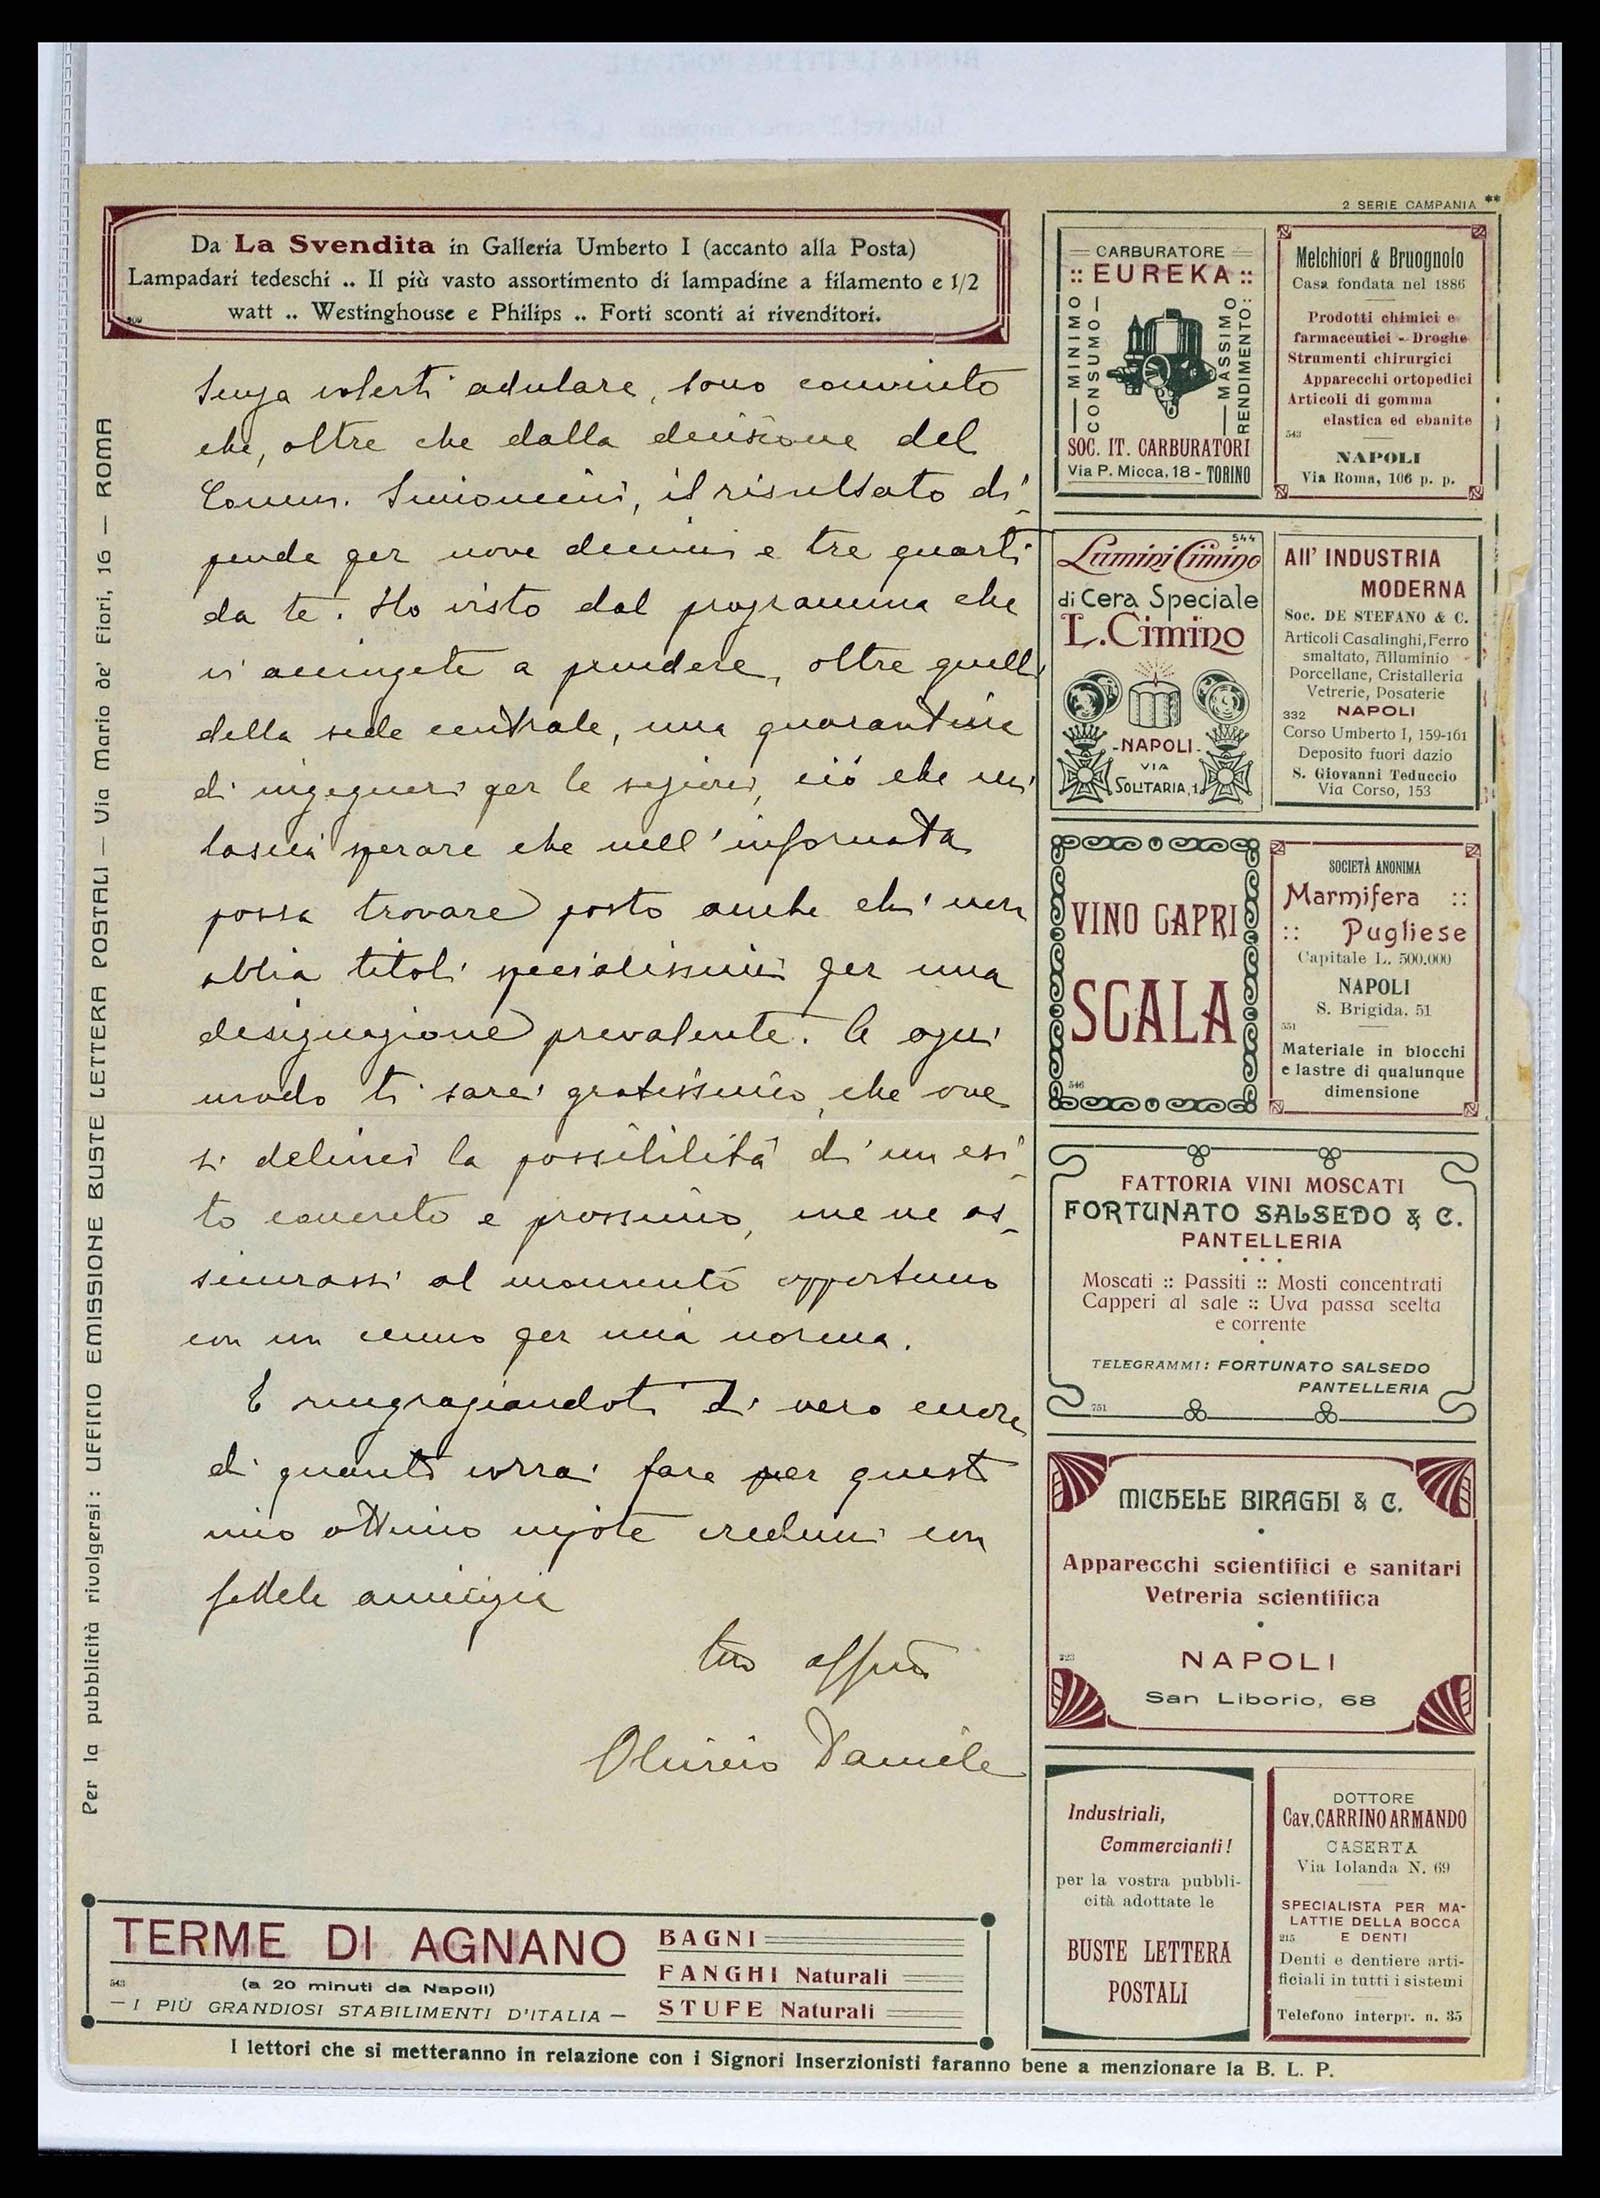 2 SERIE CAMPANIA **
Da La Svendita in Galleria Umberto I (accanto alla Posta)
Lampadari tedeschi .. Il più vasto assortimento di lampadine a filamento e 1/2
watt .. Westinghouse e Philips .. Forti sconti ai rivenditori.
Senza volerti adulare, sono convinto
che, oltre che dalla decisione del
Comm. Simoncini, il risultato di-
pende per nove decimi e tre quarti
da te. Ho visto dal programma che
vi accingete a prendere, oltre quelli
della sede centrale, una quarantina
di ingegneri per le sezioni, ciò che mi
lascia sperare che nell'infornata
possa trovare posto anche chi non
abbia titoli specialissimi per una
designazione prevalente. A ogni
modo ti sarei gratissimo, che ove
si delinei la possibilità di un esi-
to concreto e prossimo, me ne as-
sicurassi al momento opportuno
con un cenno per mia norma.
E ringraziandoti di vero cuore
di quanto vorrai fare per questo
mio ottimo nipote credimi con
fedele amicizia
tuo affmo
Daniele
Per la pubblicità rivolgersi: UFFICIO EMISSIONE BUSTE LETTERA POSTALI — Via Mario de' Fiori, 16 — ROMA
CARBURATORE
:: EUREKA ::
MINIMO
CONSUMO
MASSIMO
RENDIMENTO
SOC. IT. CARBURATORI
Via P. Micca, 18 - TORINO
Melchiori & Bruognolo
Casa fondata nel 1886
Prodotti chimici e
farmaceutici - Droghe
Strumenti chirurgici
Apparecchi ortopedici
Articoli di gomma
elastica ed ebanite
543
NAPOLI
Via Roma, 106 p. p.
544
Lumini Cimino
di Cera Speciale
L. Cimino
NAPOLI
VIA
SOLITARIA, 1
All' INDUSTRIA
MODERNA
Soc. DE STEFANO & C.
Articoli Casalinghi, Ferro
smaltato, Alluminio
Porcellane, Cristalleria
Vetrerie, Posaterie
332 NAPOLI
Corso Umberto I, 159-161
Deposito fuori dazio
S. Giovanni Teduccio
Via Corso, 153
VINO CAPRI
SCALA
546
SOCIETÀ ANONIMA
Marmifera ::
:: Pugliese
Capitale L. 500.000
NAPOLI
S. Brigida, 51
551
Materiale in blocchi
e lastre di qualunque
dimensione
FATTORIA VINI MOSCATI
FORTUNATO SALSEDO & C.
PANTELLERIA
Moscati :: Passiti :: Mosti concentrati
Capperi al sale :: Uva passa scelta
e corrente
TELEGRAMMI: FORTUNATO SALSEDO
PANTELLERIA
751
MICHELE BIRAGHI & C.
Apparecchi scientifici e sanitari
Vetreria scientifica
NAPOLI
San Liborio, 68
Industriali,
Commercianti!
per la vostra pubbli-
cità adottate le
BUSTE LETTERA
POSTALI
DOTTORE
Cav. CARRINO ARMANDO
CASERTA
Via Iolanda N. 69
SPECIALISTA PER MA-
LATTIE DELLA BOCCA
215 E DENTI
Denti e dentiere arti-
ficiali in tutti i sistemi
Telefono interpr. n. 35
TERME DI AGNANO
543 (a 20 minuti da Napoli)
— I PIÙ GRANDIOSI STABILIMENTI D'ITALIA —
BAGNI
FANGHI Naturali
STUFE Naturali
I lettori che si metteranno in relazione con i Signori Inserzionisti faranno bene a menzionare la B. L. P.